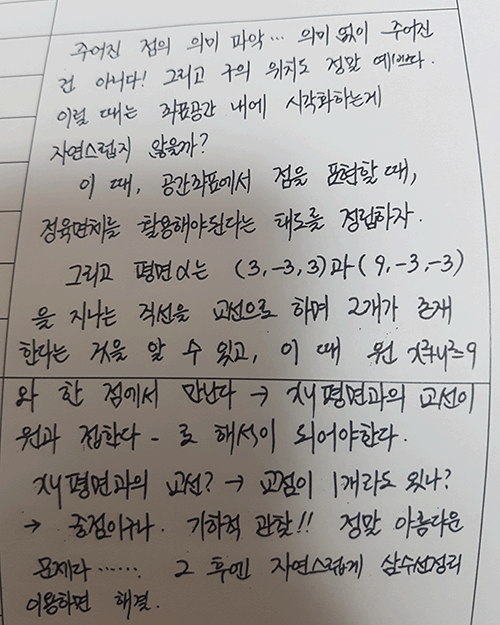 주어진 점의 의미 파악... 의미 없이 주어진
건 아니다! 그리고 구의 위치도 정말 예쁘다.
이럴 때는 좌표공간 내에 시각화하는게
자연스럽지 않을까?
이 때, 공간좌표에서 점을 표현할 때,
정육면체를 활용해야된다는 태도를 정립하자.
그리고 평면 α는 (3,-3,3)과 (9,-3,-3)
을 지나는 직선을 교선으로 하며 2개가 존재
한다는 것을 알 수 있고, 이 때 원 x²+y²=9
와 한 점에서 만난다 → xy평면과의 교선이
원과 접한다 - 로 해석이 되어야한다.
xy평면과의 교선? → 교점이 1개라도 있나?
→ 중점이구나. 기하적 관찰!! 정말 아름다운
문제다...... 그 후엔 자연스럽게 삼수선정리
이용하면 해결.